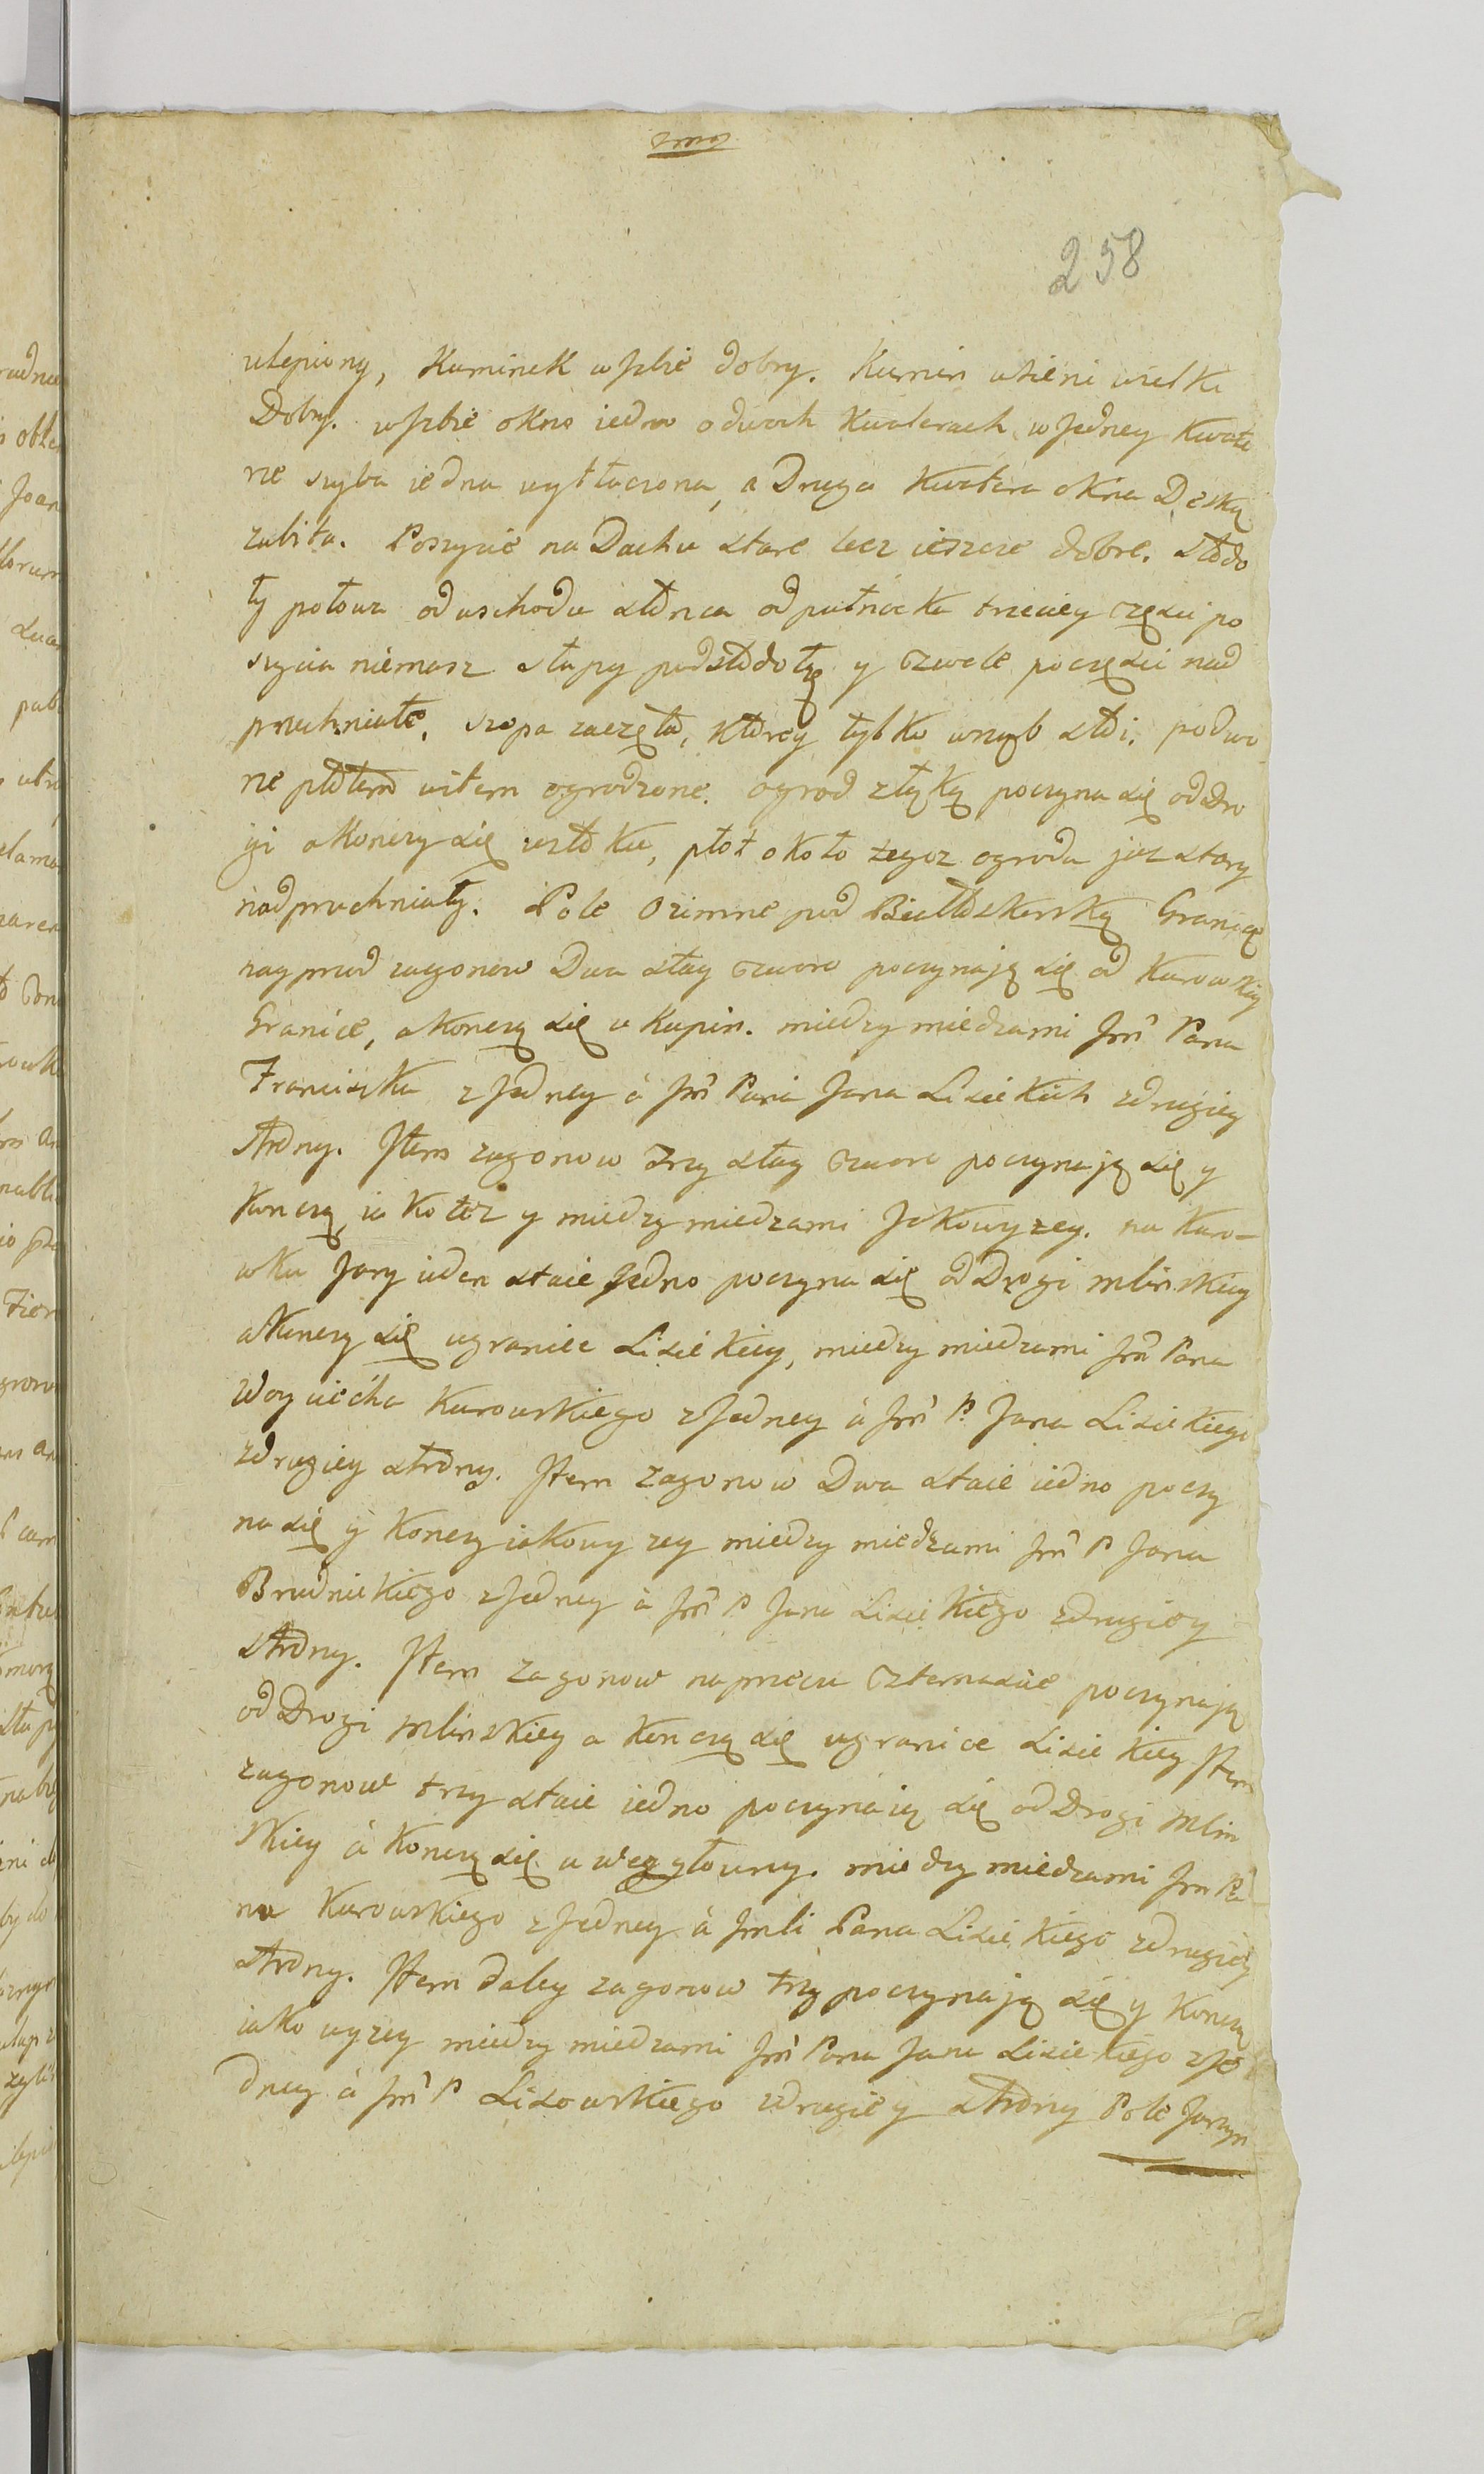 258
ulepiony, Kominek w Jzbie dobry. Komin w sieni wielki
Dobry. w Jzbie okno iedno o dwoch Kwaterach, w Jedney Kwate
rze szyba iedna wytłaczona, a Druga Kwatera okna Deską
zabita. Poszycie na Dachu stare lecz ieszcze dobre. stodo
ły połowa od wschodu słónca od pułnocka trzeciey części po
szycia niemasz słupy pod stodołą y czwele po części nad
pruchniałe, szopa zaczęta, ktorey tylko wrąb stoi, podwo
rze płotem witem ogrodzone. ogrod z łąką poczyna się od Dro
gi a Konczy się u stoku, płot około tegoz ogroda juz stary
nadpruchniały. Pole Ozimne pod Białoskorską Granicą
nayprzod zagonow Dwa staj czworo poczynają się od Kurowskiy
Granice, a Konczą się u Kupin. miedzy miedzami Jmć Pana
Franciszka z Jedney à Jmć Pana Jana Lisickich z drugiey
strony. Jtem zagonow Trzy stay czworo poczynają się y
Konczą, iako tez y miedzy miedzami Jakowyzey. na Kuro-
wku Jary ieden staie Jedno poczyna się od Drogi mlinskiey
a Konczy się u granice Lisickiey, miedzy miedzami Jmć Pana
Woyciecha Kurowskiego z Jedney à Jmć P. Jana Lisickiego
z drugiey strony. Jtem zagonow Dwa staie iedno poczy
na się y Konczy iakowyzey miedzy miedzami Jmć P Jana
Brudnickiego z Jedney à Jmć P Jana Lisickiego z drugiey
strony. Jtem zagonow naprzecu czternascie poczynają
od Drogi mlinskiey a Konczą się u granice Lisickiey Jtem
zagonow trzy staie iedno poczynaią się od Drogi mlin
skiey à Konczą się u wezgłowzy. miedzy miedzami Jmć Pa
na Kurowskiego z Jedney à Jmći Pana Lisickiego z drugiey
strony. Jtem daley zagonow trzy poczynają się y Konczą
iako wyzey miedzy miedzami Jmć Pana Jana Lisickiego z Je
dney à Jmć P Lisowskiego z drugiey strony Pole Jarzyn